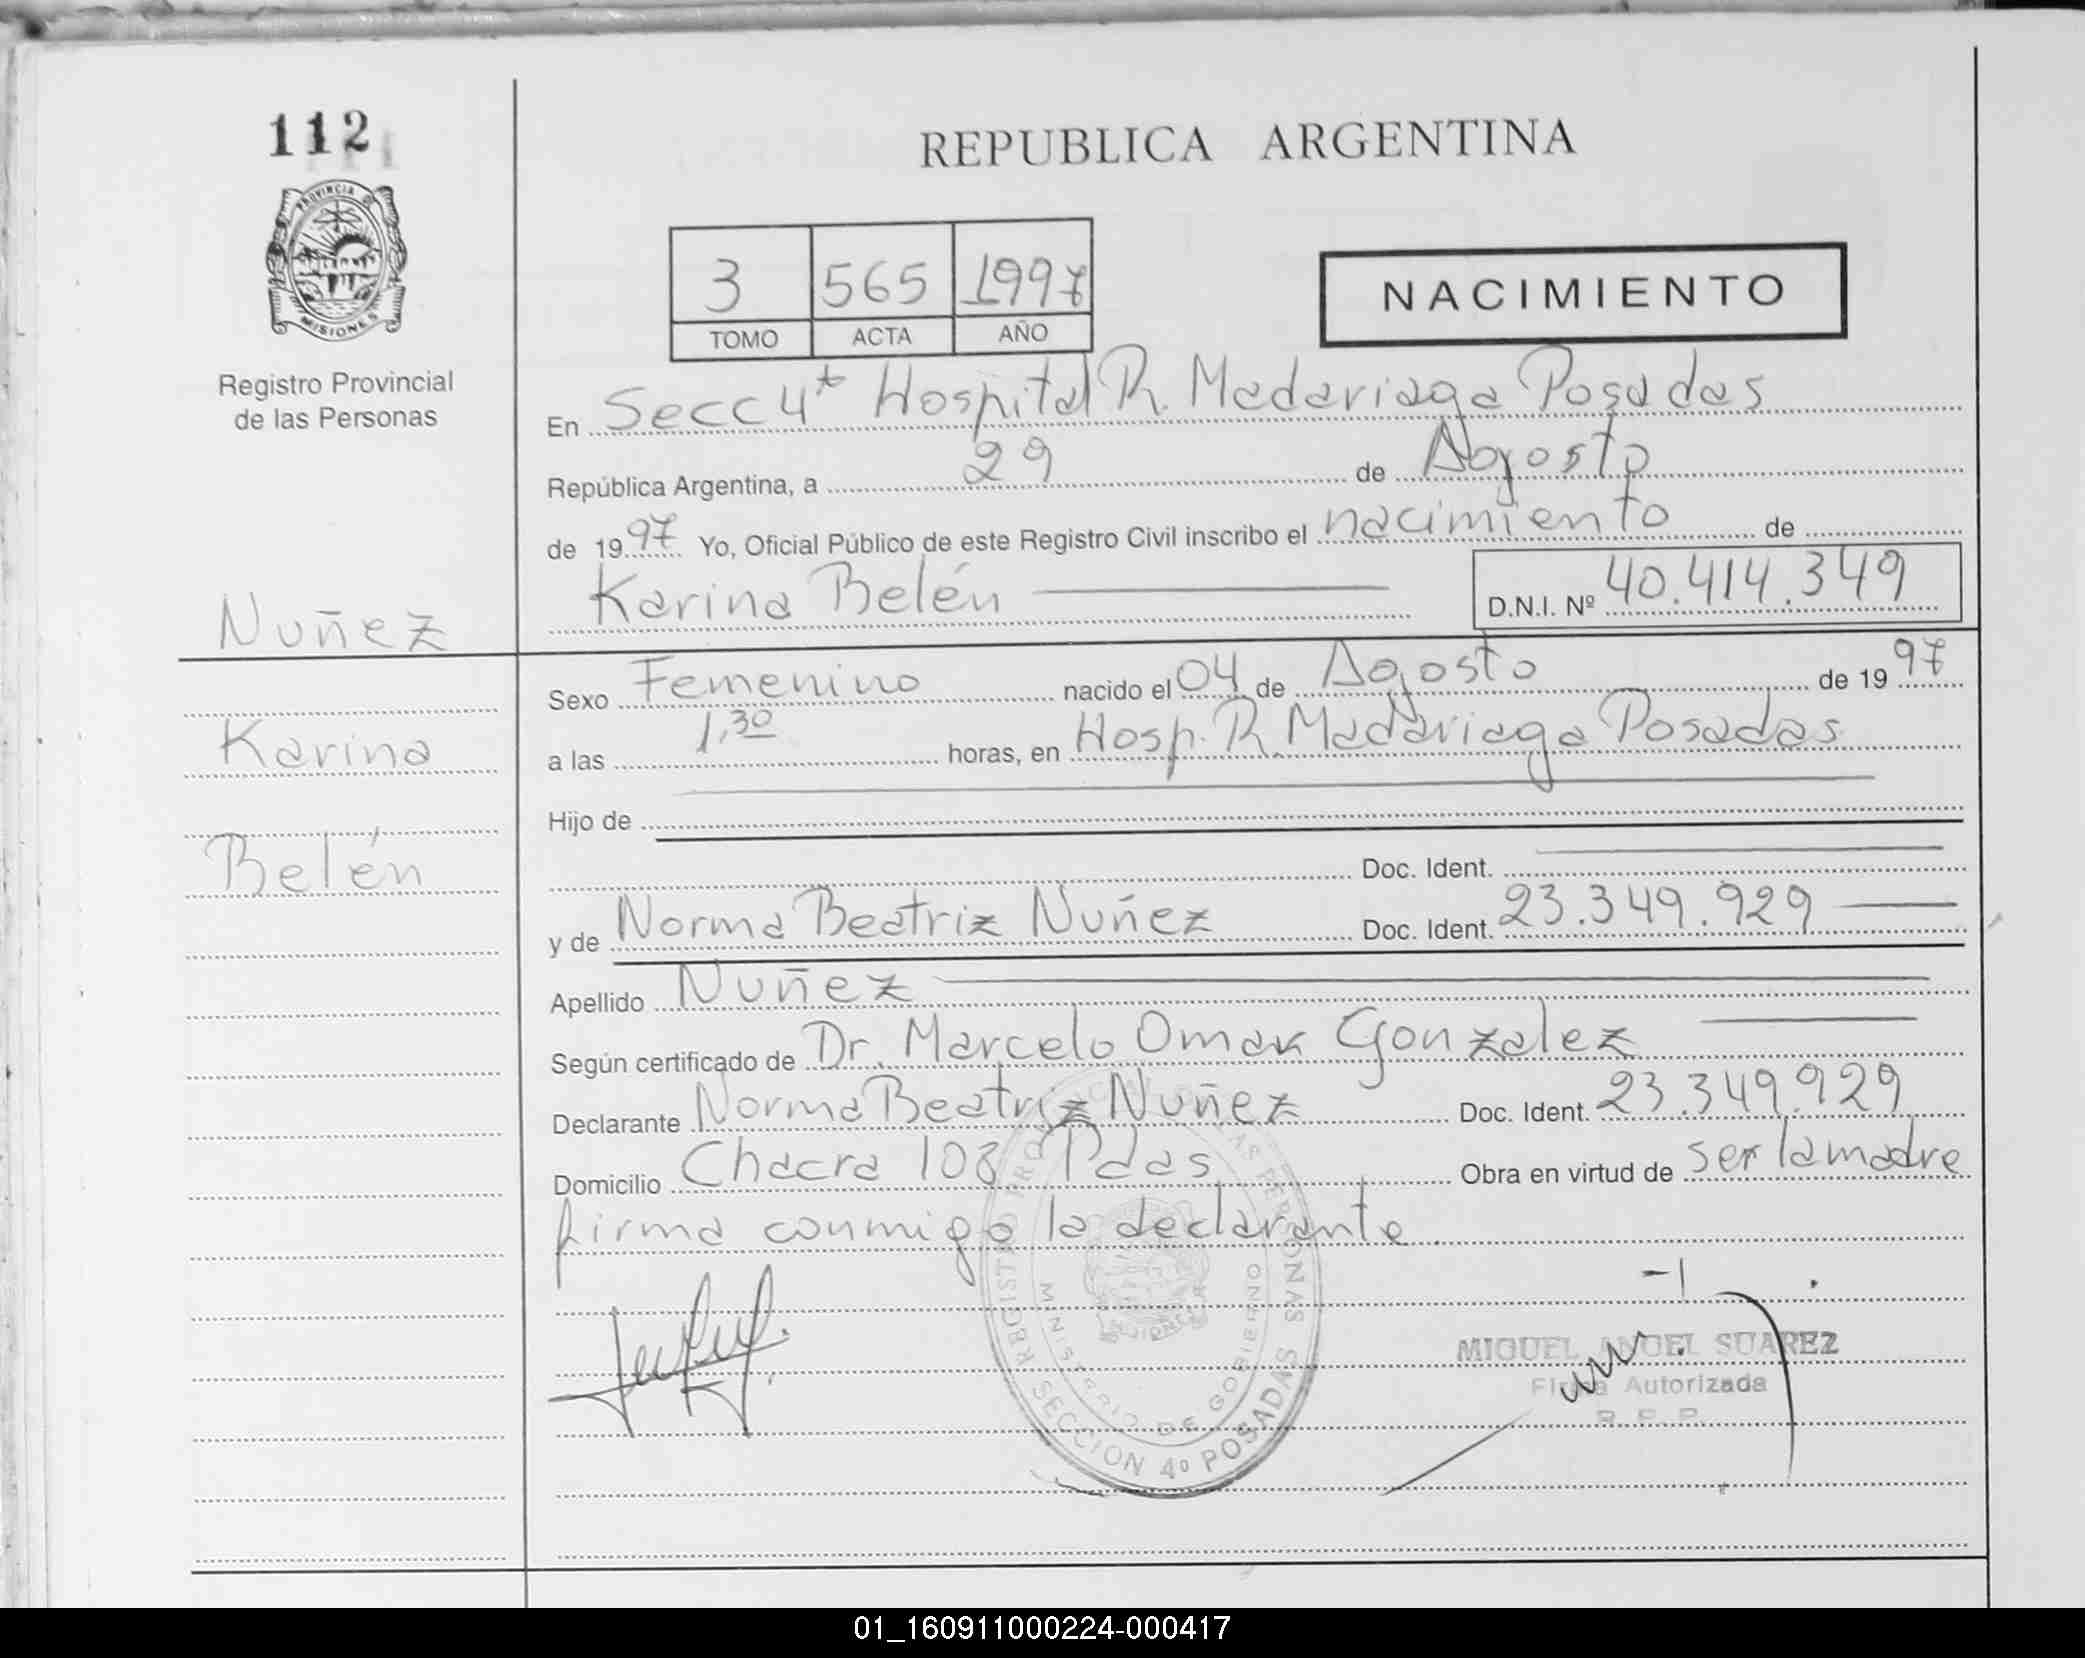 112
REPUBLICA ARGENTINA
PROVINCIA DE
MISIONES
Registro Provincial
de las Personas
3 565 1997
TOMO ACTA AÑO
NACIMIENTO
En Secc 4ta Hospital R. Madariaga Posadas
República Argentina, a 29 de Agosto
de 1997 Yo, Oficial Público de este Registro Civil inscribo el nacimiento de
Karina Belén
D.N.I. Nº 40.414.349
Nuñez
Karina
Belén
Sexo Femenino nacido el 04 de Agosto de 1997
a las 1,30 horas, en Hosp. R. Madariaga Posadas
Hijo de
Doc. Ident.
y de Norma Beatriz Nuñez Doc. Ident. 23.349.929
Apellido Nuñez
Según certificado de Dr. Marcelo Omar Gonzalez
Declarante Norma Beatriz Nuñez Doc. Ident. 23.349.929
Domicilio Chacra 103 Pdas Obra en virtud de ser la madre
firma conmigo la declarante
REGISTRO PROVINCIAL DE LAS PERSONAS
MINISTERIO DE GOBIERNO
MISIONES
SECCION 4º POSADAS
MIGUEL ANGEL SUAREZ
Firma Autorizada
R. P. P.
01_160911000224-000417